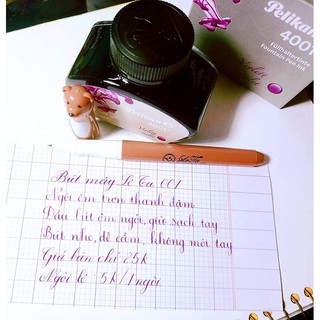 Pelikan
4001
Füllhaltertinte
Fountain Pen Ink
Pelikan
Bút máy Lê Ca 001
Ngòi êm trơn thanh đậm
Đầu bút êm ngòi, giữ sạch tay
Bút nhẹ, dễ cầm, không mỏi tay
Giá bán chỉ 25k
Ngòi lẻ 5k/1 ngòi